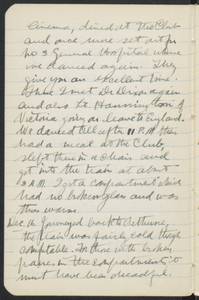 cinema, dined at the Club
and once more set out for
No 3 General Hospital where
we danced again. They
give you an excellent time.
There I met Dr. again
and also Lt Hannington of
Victoria going on leave to England.
We danced till after 11 P.M. then
had a meal at the Club,
slept there in a chair and
got into the train at about
3 A.M. I got a compartment which
had no broken glass and was
thus warm.
Dec. 16 Journeyed back to Bethune,
the train was fairly cold though
comfortable. In those with broken
panes in the compartments it
must have been dreadful.